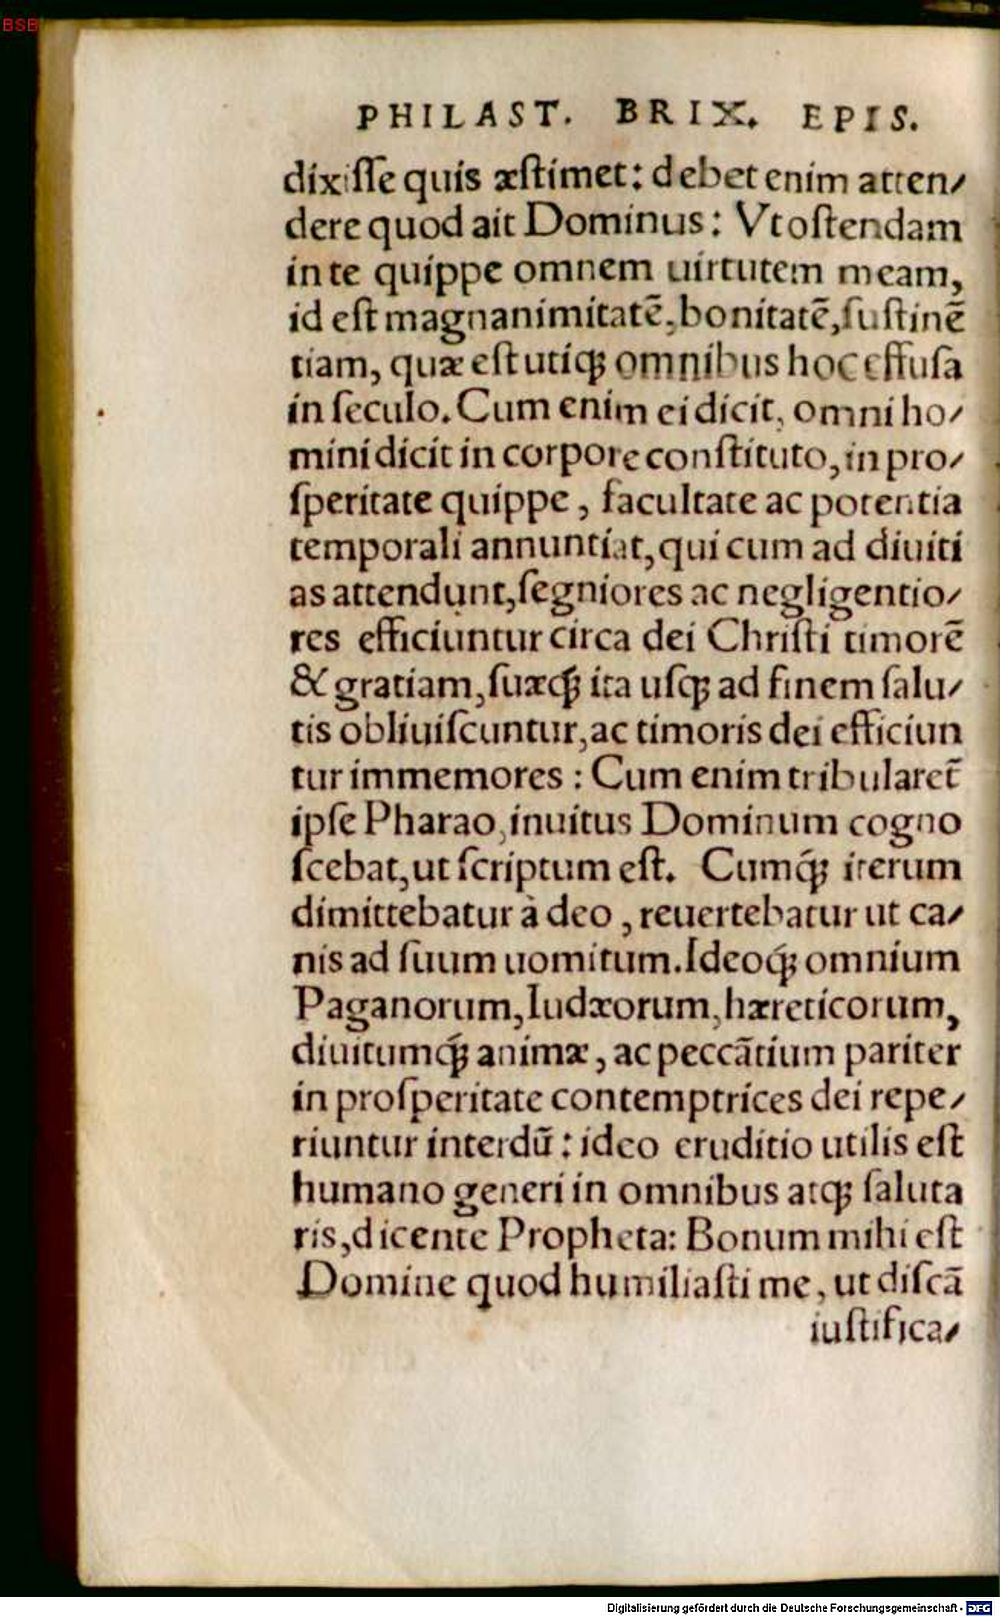 BSB
PHILAST. BRIX. EPIS.
dixiſſe quis æſtimet: debet enim atten⸗
dere quod ait Dominus: Vt oſtendam
in te quippe omnem uirtutem meam,
id eſt magnanimitatē, bonitatē, ſuſtinē
tiam, quæ eſt utiqꝫ omnibus hoc effuſa
in ſeculo. Cum enim ei dicit, omni ho⸗
mini dicit in corpore conſtituto, in pro⸗
ſperitate quippe, facultate ac potentia
temporali annuntiat, qui cum ad diuiti
as attendunt, ſegniores ac negligentio⸗
res efficiuntur circa dei Chriſti timorē
& gratiam, ſuæqꝫ ita uſqꝫ ad finem ſalu⸗
tis obliuiſcuntur, ac timoris dei efficiun
tur immemores: Cum enim tribularet̄
ipſe Pharao, inuitus Dominum cogno
ſcebat, ut ſcriptum eſt. Cumq́ꝫ iterum
dimittebatur à deo, reuertebatur ut ca⸗
nis ad ſuum uomitum. Ideoq́ꝫ omnium
Paganorum, Iudæorum, hæreticorum,
diuitumq́ꝫ animæ, ac peccātium pariter
in proſperitate contemptrices dei repe⸗
riuntur interdū: ideo eruditio utilis eſt
humano generi in omnibus atqꝫ ſaluta
ris, dicente Propheta: Bonum mihi eſt
Domine quod humiliaſti me, ut diſcā
iuſtifica⸗
Digitalisierung gefördert durch die Deutsche Forschungsgemeinschaft - DFG